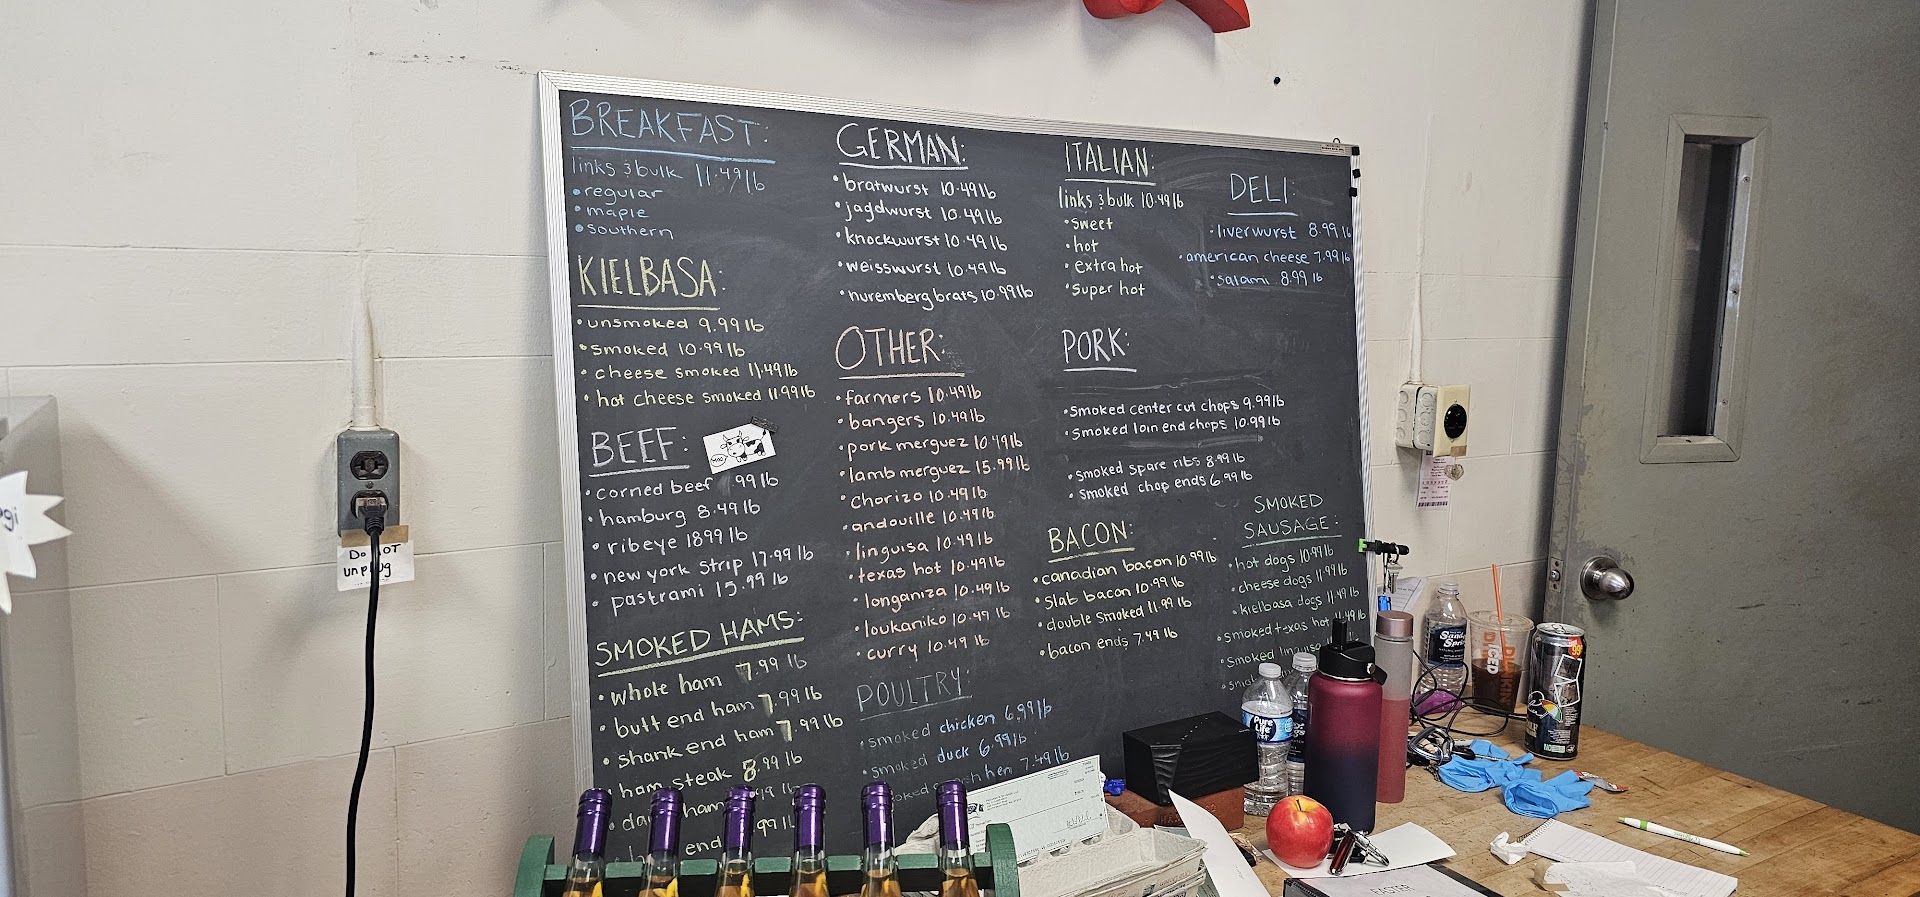 BREAKFAST:
links & bulk 11.49 lb
• regular
• maple
• southern
KIELBASA:
• unsmoked 9.99 lb
• smoked 10.99 lb
• cheese smoked 11.49 lb
• hot cheese smoked 11.99 lb
BEEF:
• corned beef .99 lb
• hamburg 8.49 lb
• ribeye 18 99 lb
• new york strip 17.99 lb
• pastrami 15.99 lb
SMOKED HAMS:
• whole ham 7.99 lb
• butt end ham 7.99 lb
• shank end ham 7.99 lb
• ham steak 8.99 lb
ham 99 lb
end 99 lb
GERMAN:
• bratwurst 10.49 lb
• jagdwurst 10.49 lb
• knockwurst 10.49 lb
• weisswurst 10.49 lb
• nuremberg brats 10.99 lb
OTHER:
• farmers 10.49 lb
• bangers 10.49 lb
• pork merguez 10.49 lb
• lamb merguez 15.99 lb
• chorizo 10.49 lb
• andouille 10.49 lb
• linguisa 10.49 lb
• texas hot 10.49 lb
• longaniza 10.49 lb
• loukaniko 10.49 lb
• curry 10.49 lb
POULTRY:
• smoked chicken 6.99 lb
• smoked duck 6.99 lb
hen 7.49 lb
ITALIAN:
links & bulk 10.49 lb
• sweet
• hot
• extra hot
• super hot
DELI:
• liverwurst 8.99 lb
• american cheese 7.99 lb
• salami 8.99 lb
PORK:
• smoked center cut chops 9.99 lb
• smoked loin end chops 10.99 lb
• smoked spare ribs 8.99 lb
• smoked chop ends 6.99 lb
BACON:
• canadian bacon 10.99 lb
• slab bacon 10.99 lb
• double smoked 11.99 lb
• bacon ends 7.49 lb
SMOKED
SAUSAGE:
• hot dogs 10.99 lb
• cheese dogs 11.99 lb
• kielbasa dogs 11.49 lb
• smoked texas hot 11.49 lb
• smoked linguisa
MOO
DO NOT
unplug
Pure
Life
DUNKIN'
ICED
99¢
EASTER